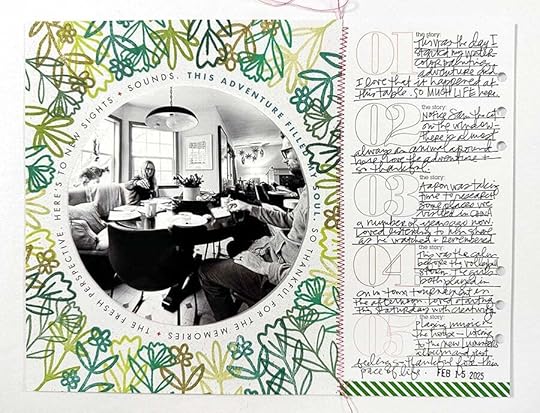 HERE'S TO NEW SIGHTS + SOUNDS. THIS ADVENTURE FILLED MY SOUL. SO THANKFUL FOR THE MEMORIES + THE FRESH PERSPECTIVE.
01
the story:
This was the day I
started my
adventure and
I love that it happened at
this table. SO MUCH LIFE here.
02
the story:
Notice Sam the cat
on the window
There is almost
always an animal around
here. I love the adventure +
so thankful.
03
the story:
was taking
time to
some places we
visited in
a number of years ago now
loved listening to him
as he watched + remembered
04
the story:
This was the calm
before the volleyball
storm. The girls
both played in
our town tournament in
the afternoon. Loved starting
this Saturday with creativity
05
the story:
Playing music in
the house - listening
to the new Lumineers
album and just
feeling thankful for this
pace of life.
FEB 15 2025